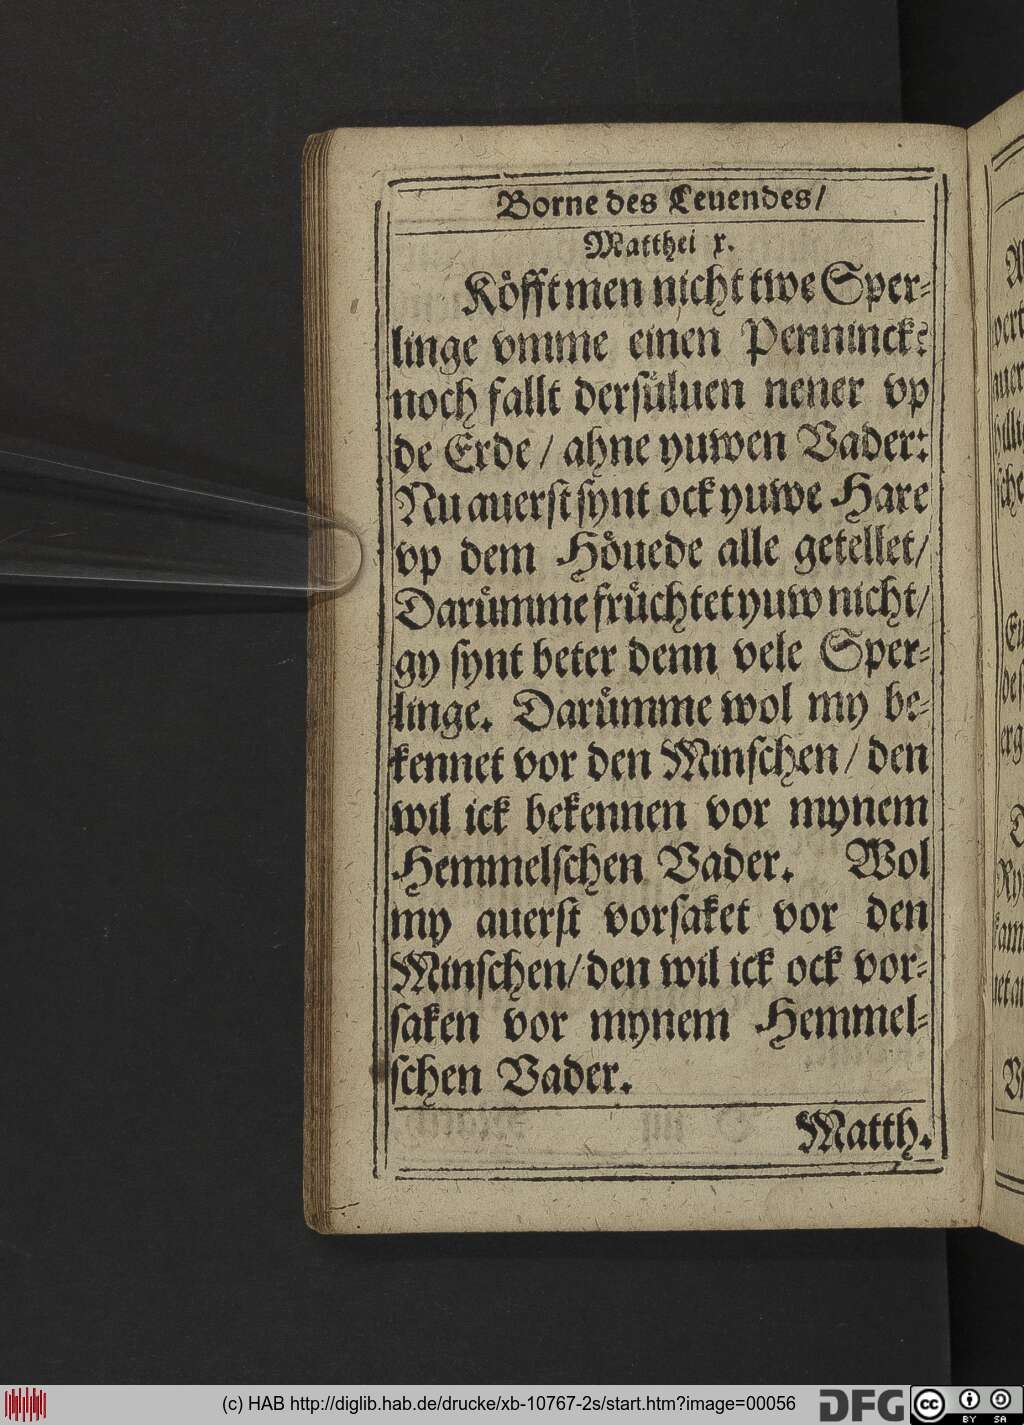 Borne des Leuendes/
Matthei x.
Köfft men nicht twe Sper⸗
linge vmme einen Penninck?
noch fallt dersüluen nener vp
de Erde / ahne yuwen Vader:
Nu auerst synt ock yuwe Hare
vp dem Höuede alle getellet/
Darümme früchtet yuw nicht/
gy synt beter denn vele Sper⸗
linge. Darümme wol my be⸗
kennet vor den Minschen / den
wil ick bekennen vor mynem
Hemmelschen Vader. Wol
my auerst vorsaket vor den
Minschen/ den wil ick ock vor⸗
saken vor mynem Hemmel⸗
schen Vader.
Matth.
(c) HAB http://diglib.hab.de/drucke/xb-10767-2s/start.htm?image=00056
DFG
cc BY SA